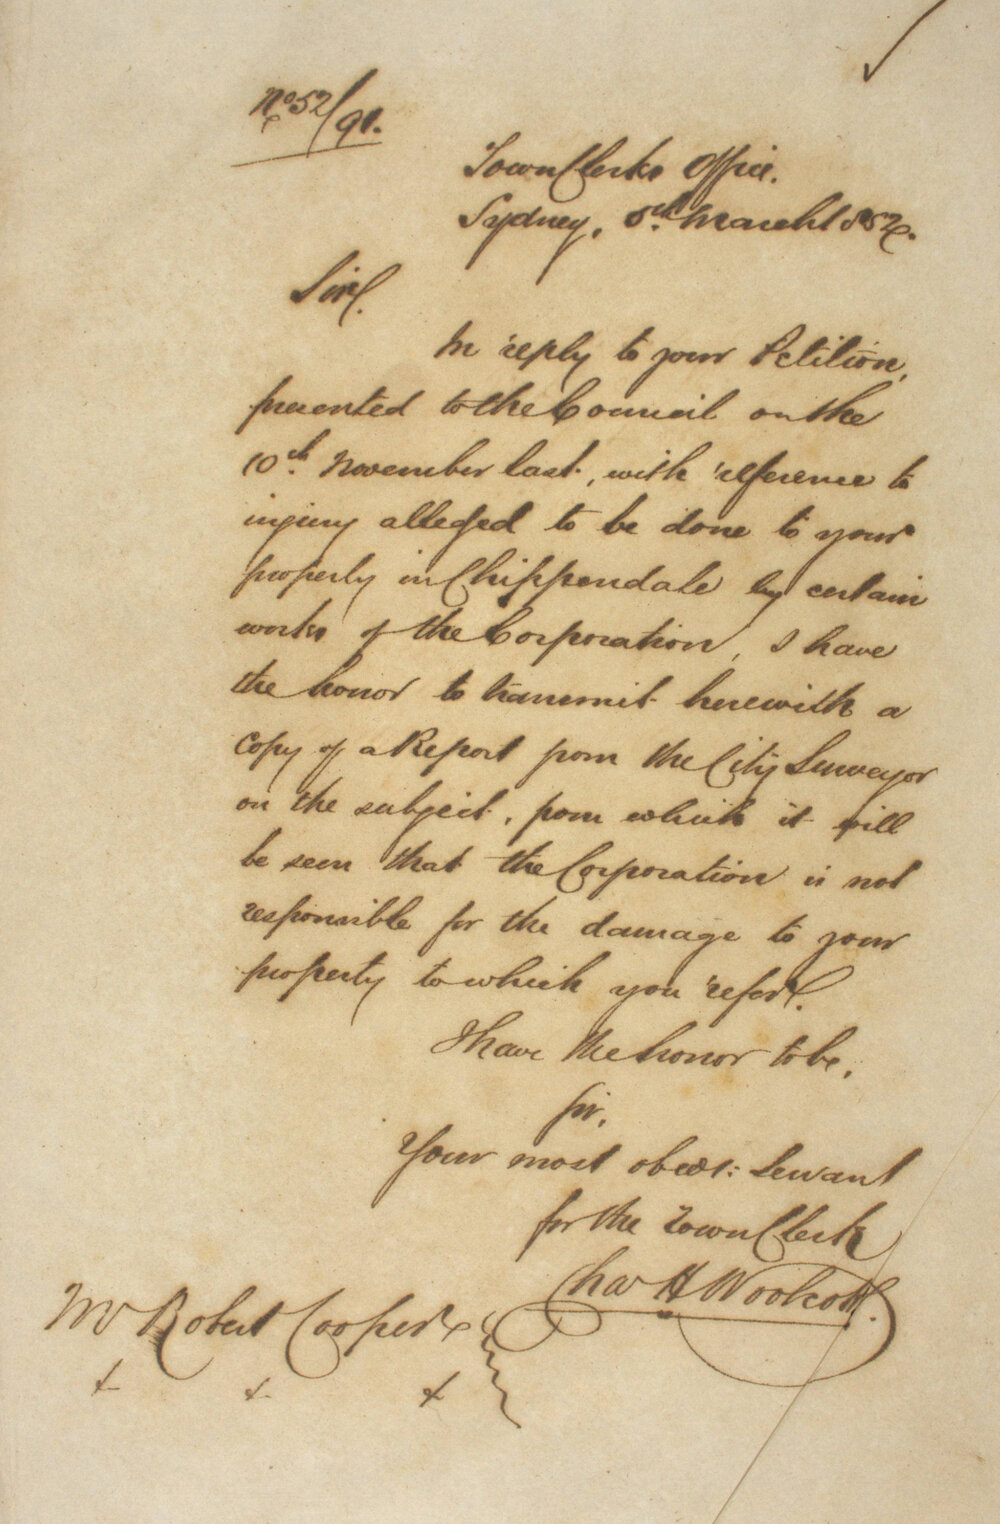 No 52/91.
Town Clerks Office.
Sydney, 5th March 1852.
Sir.
In reply to your Petition,
presented to the Council on the
10th November last, with reference to
injury alleged to be done to your
property in Chippendale by certain
works of the Corporation, I have
the honor to transmit herewith a
copy of a Report from the City Surveyor
on the subject, from which it will
be seen that the Corporation is not
responsible for the damage to your
property to which you refer.
I have the honor to be,
Sir,
Your most obedt: Servant
for the Town Clerk
Chas H Woolcott.
Mr Robert Cooper